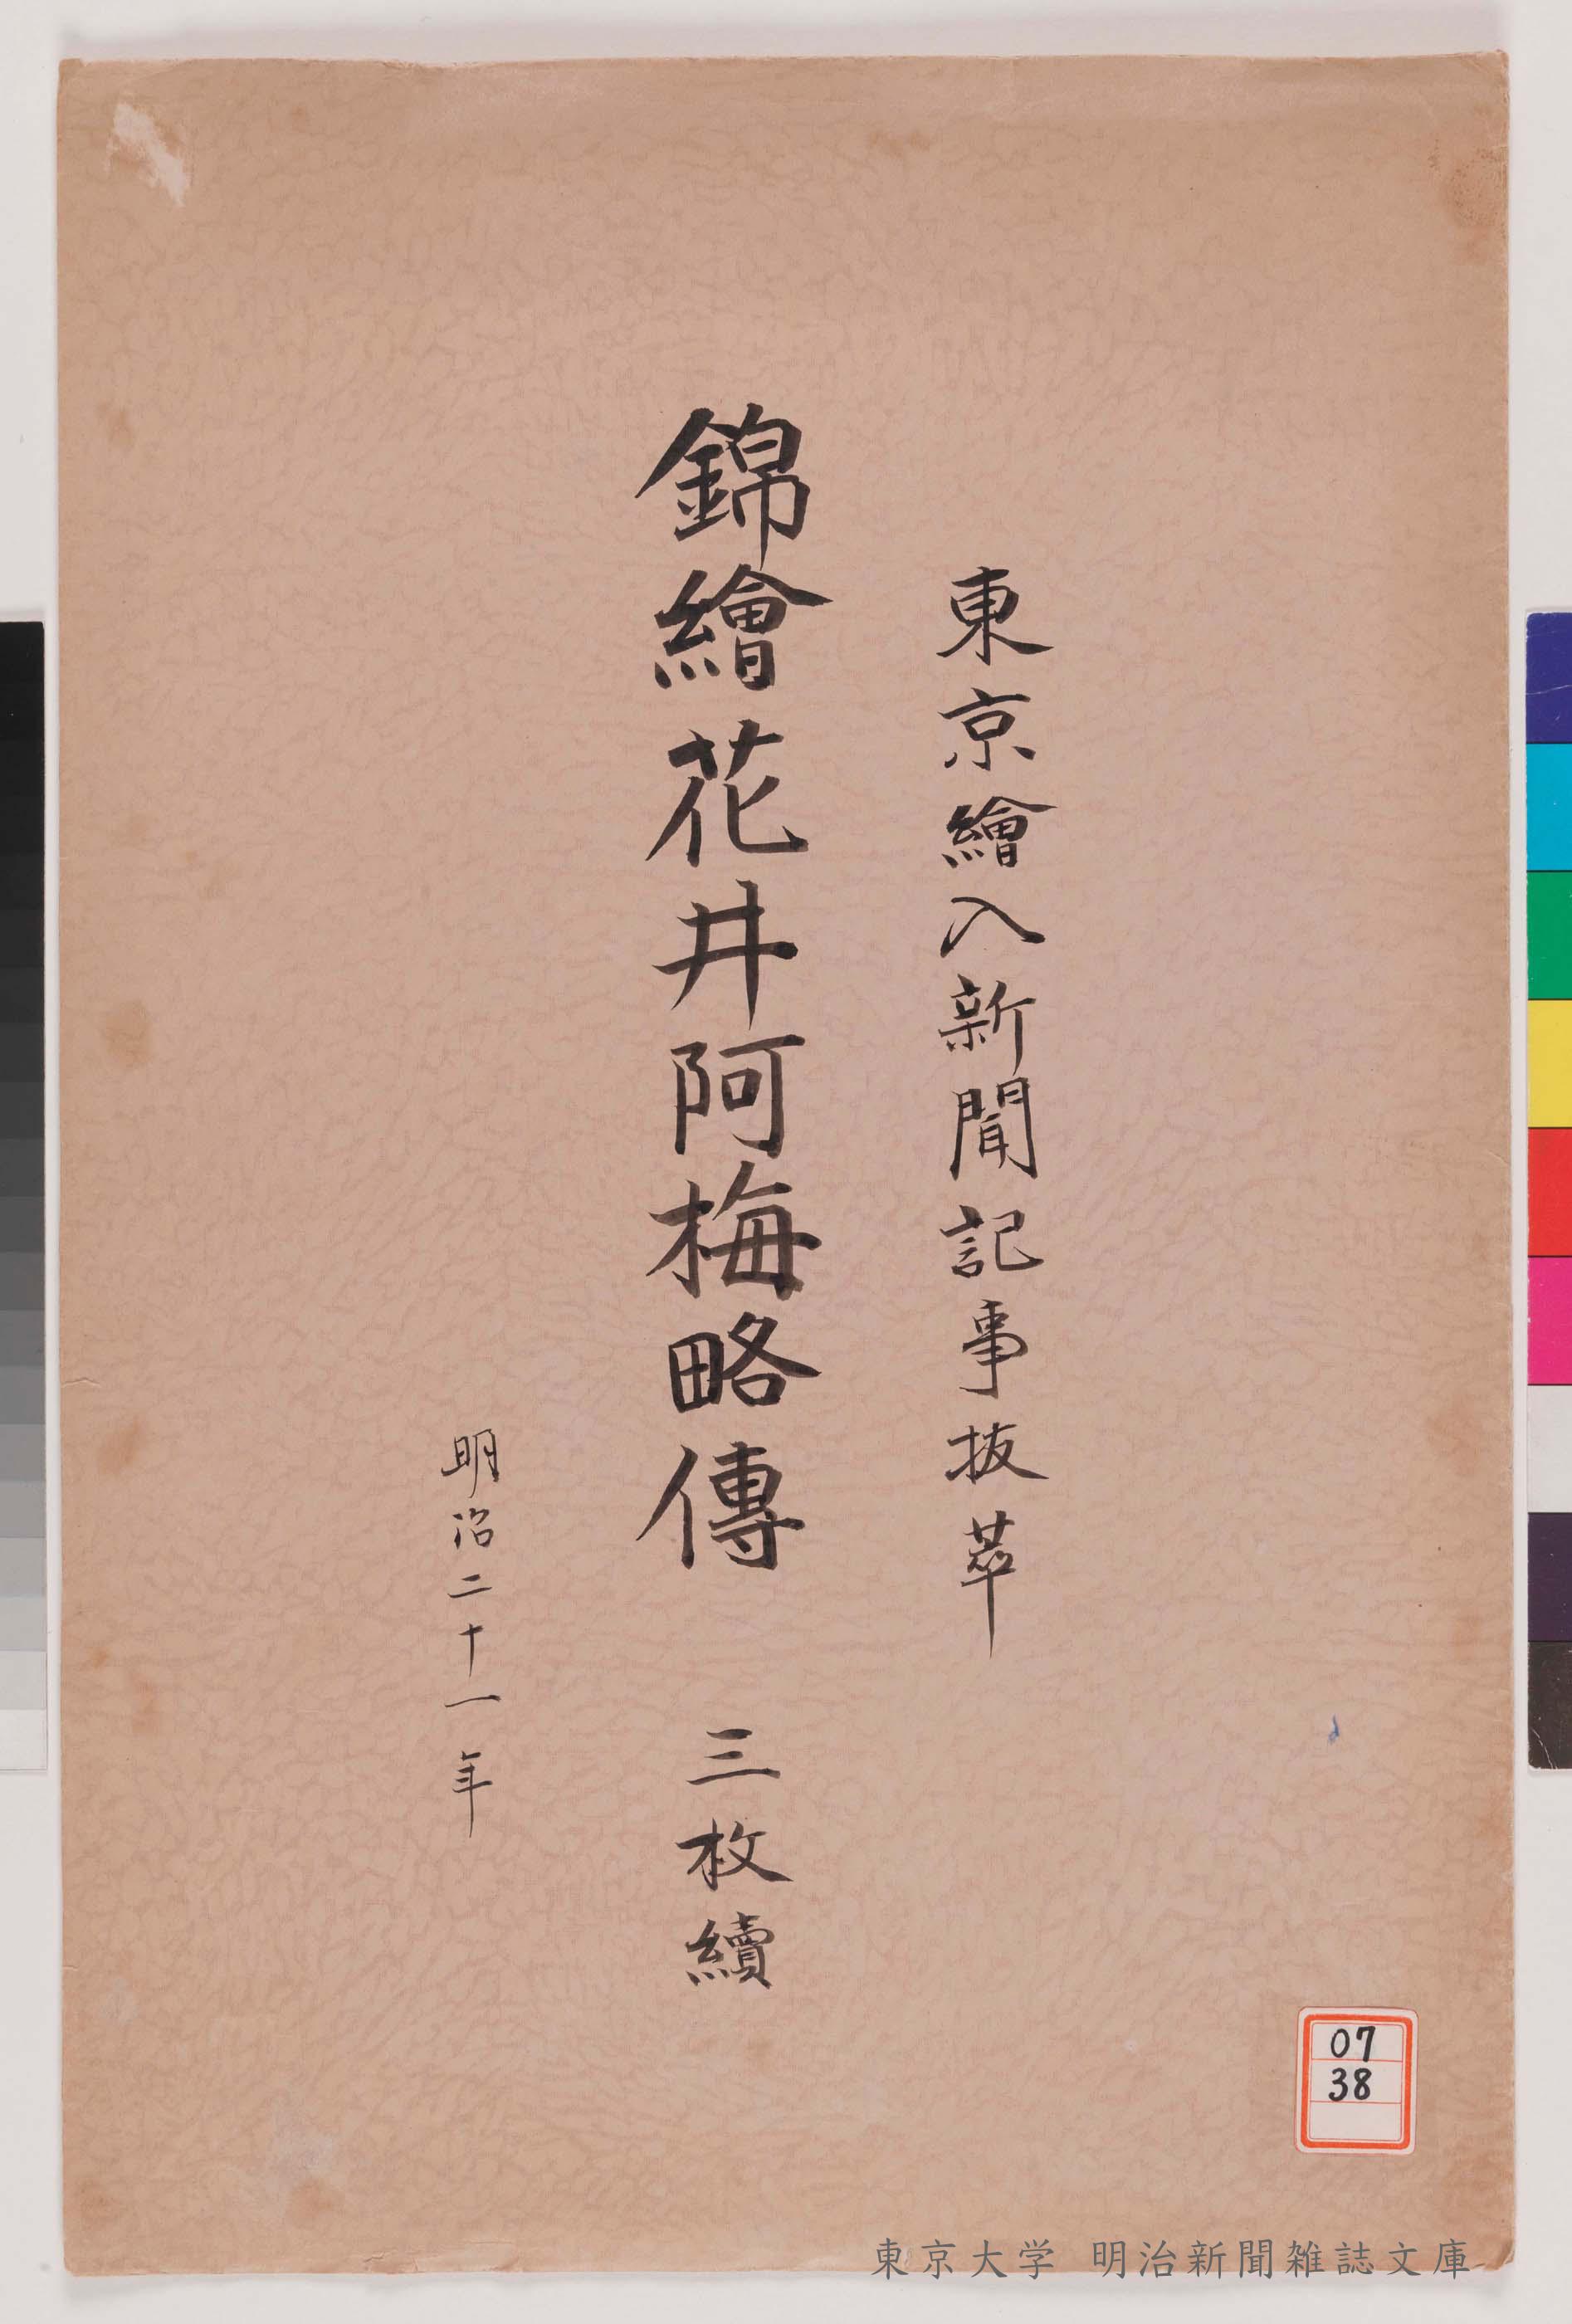 東京繪入新聞記事抜萃
錦繪花井阿梅略傳 三枚續
明治二十一年
07
38
東京大学 明治新聞雑誌文庫